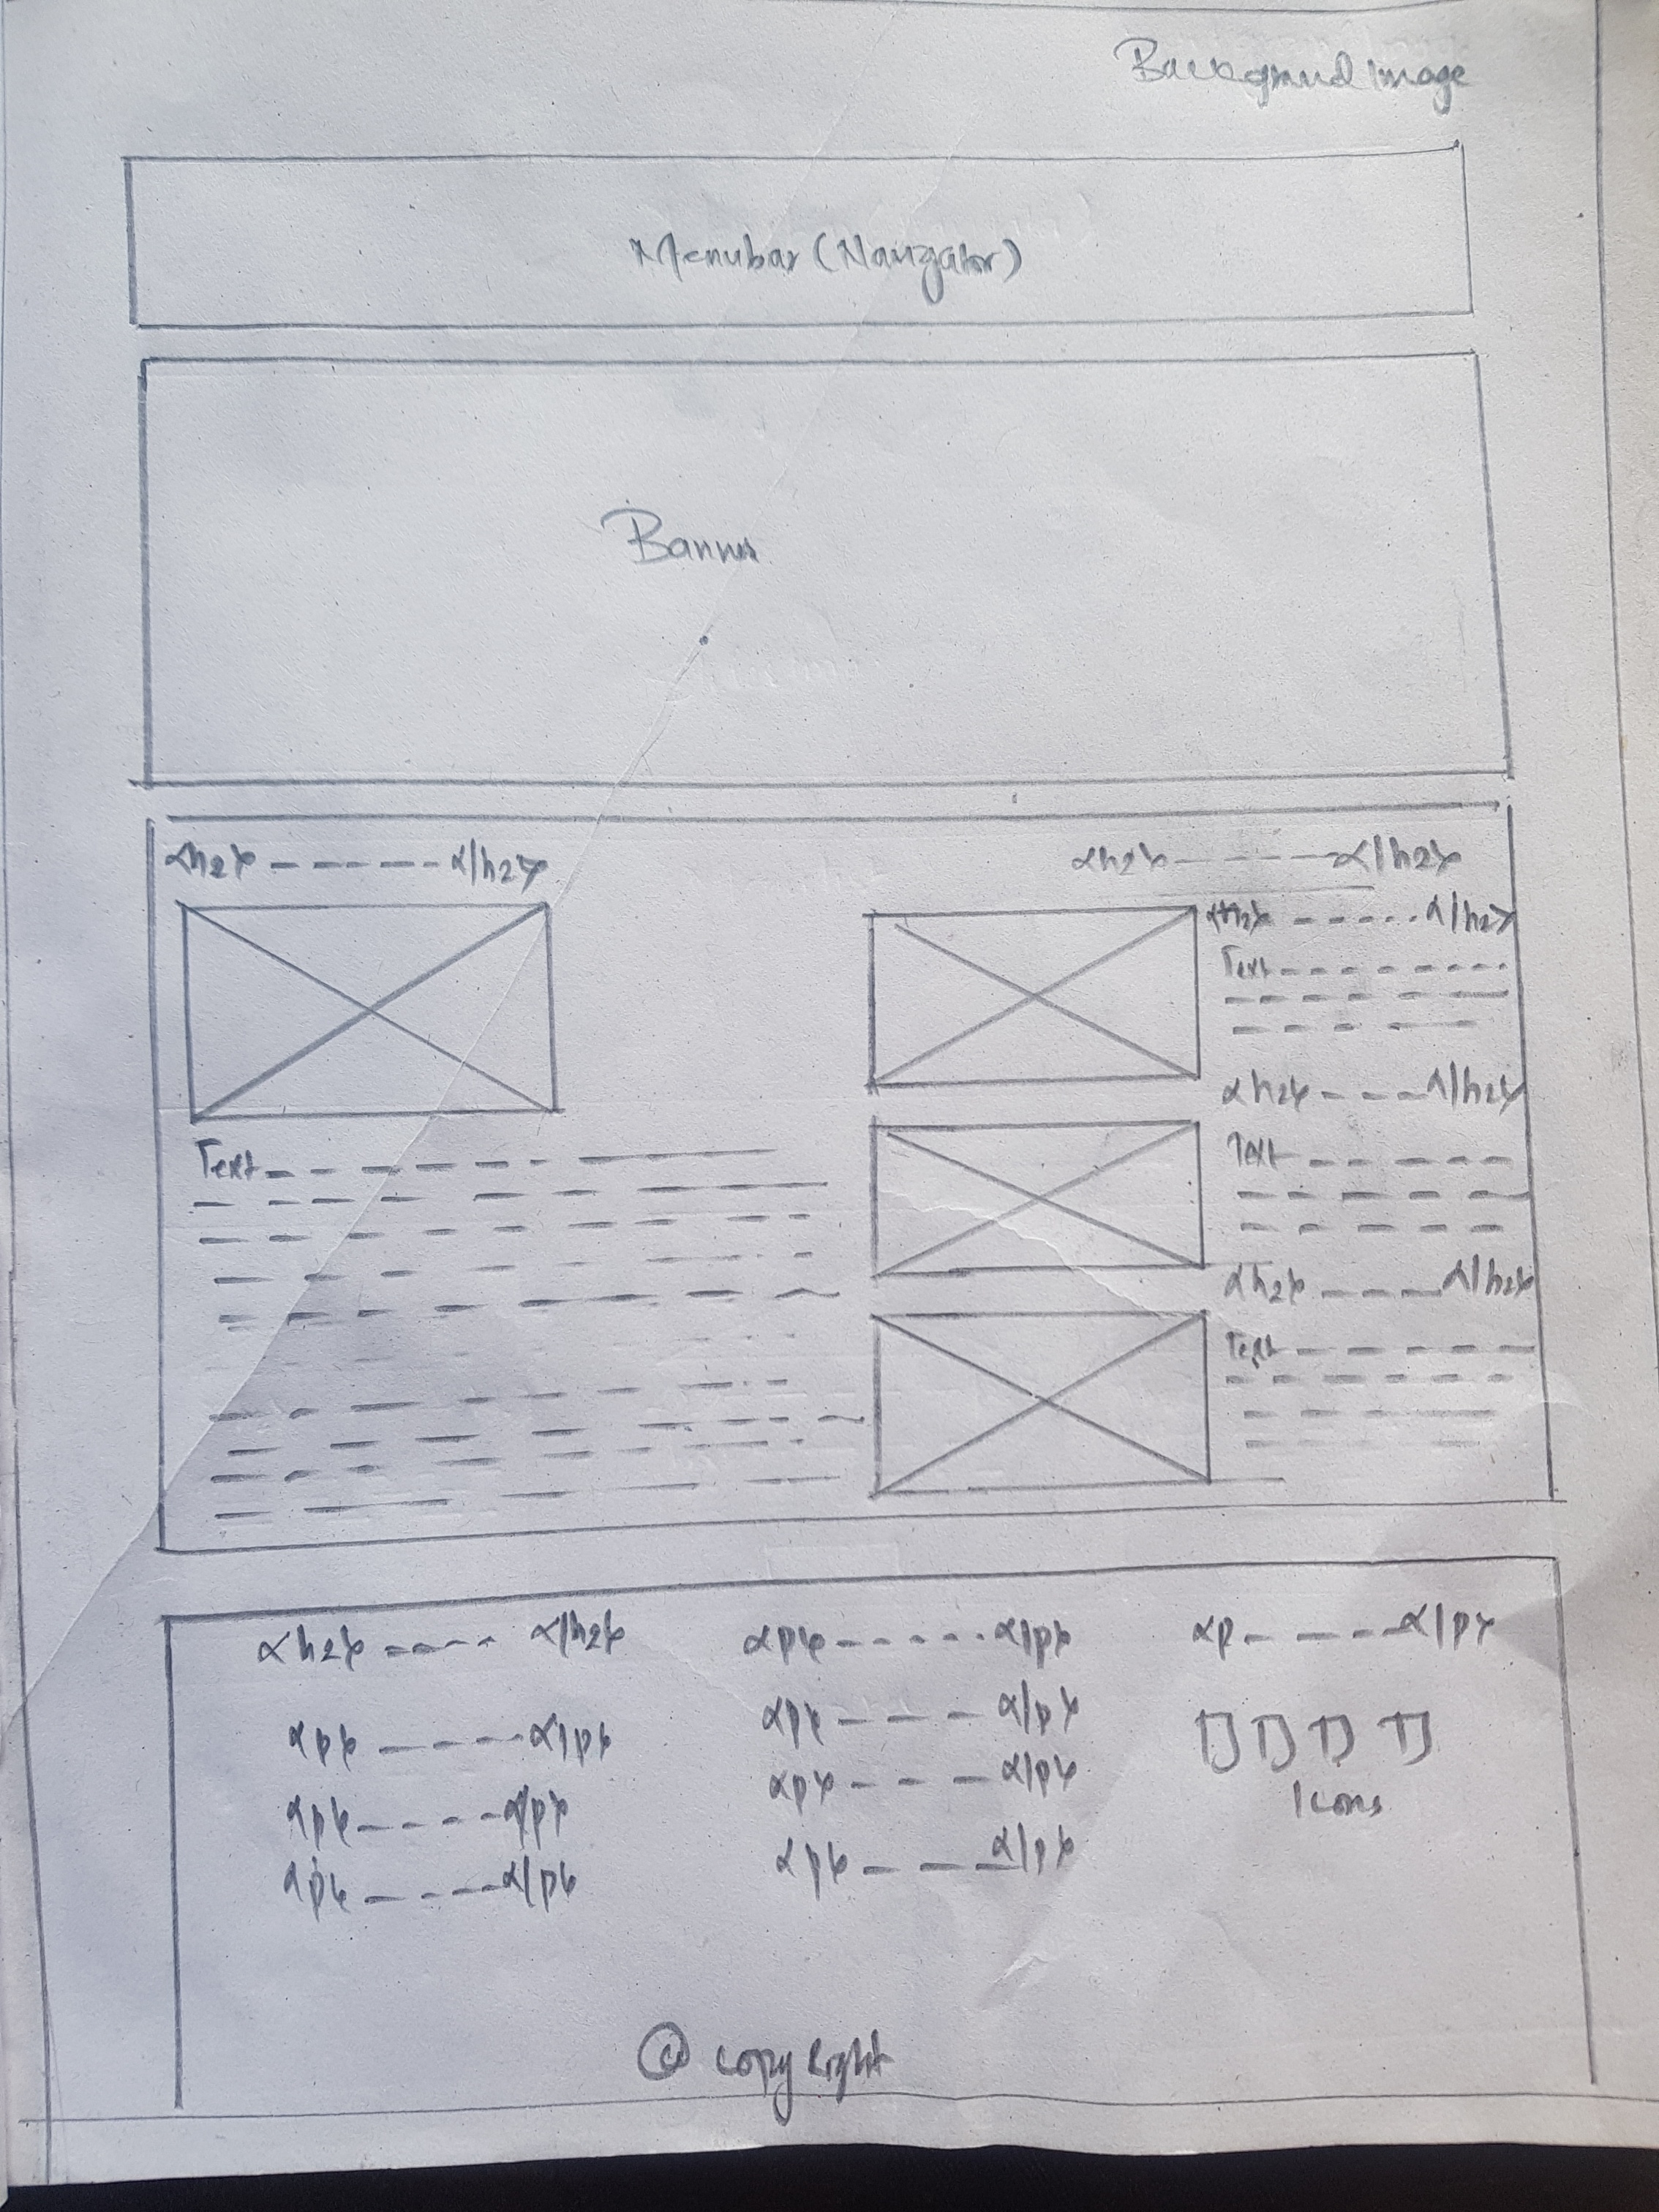 Background Image
Menubar (Navigator)
Banner
<h2> ----- </h2>
Text
<h2> ---- </h2>
<h2> ----- </h2>
Text
<h2> --- </h2>
Text
<h2> ---- </h2>
Text
<h2> ---- </h2>
<p> ---- </p>
<p> ---- </p>
<p> ---- </p>
<p> ----- </p>
<p> --- </p>
<p> --- </p>
<p> --- </p>
<p ---- </p>
Icons
© copy Right